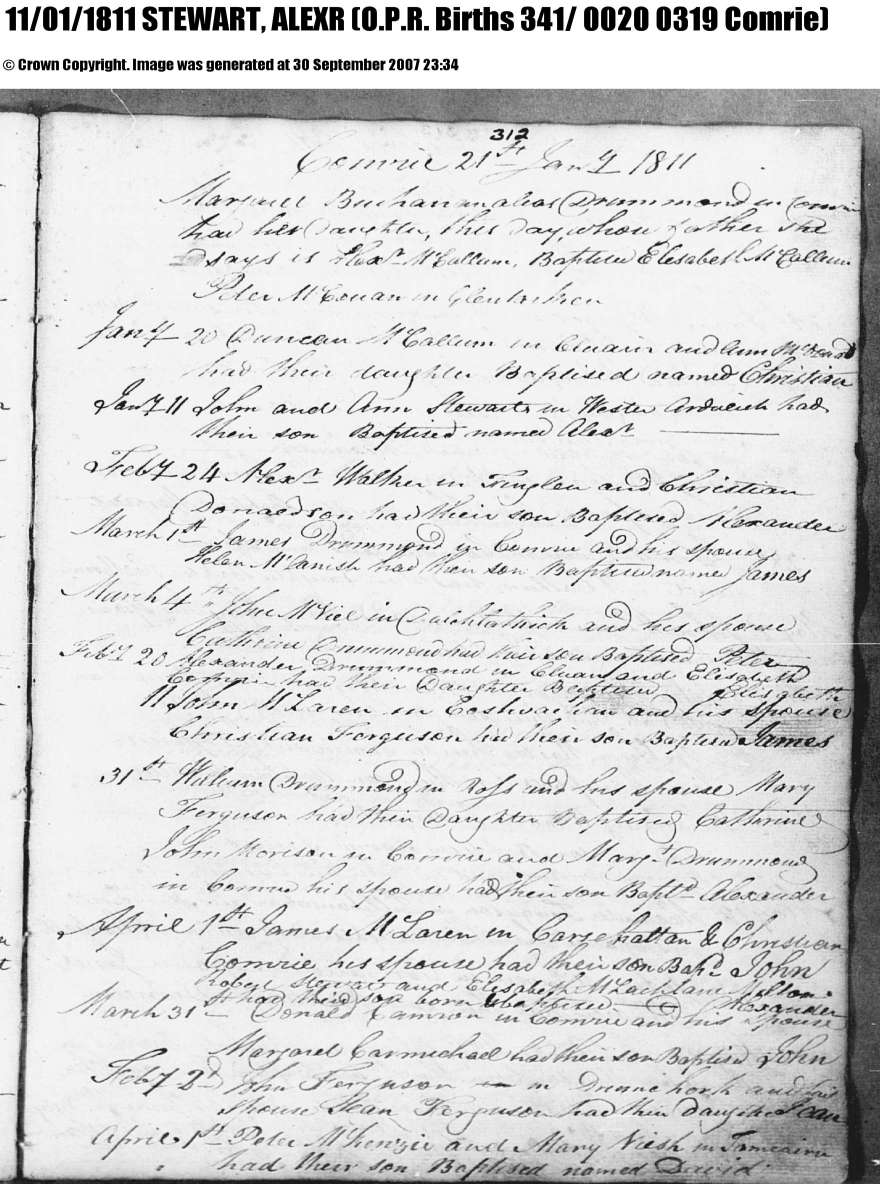 11/01/1811 STEWART, ALEXR (O.P.R. Births 341/ 0020 0319 Comrie)
© Crown Copyright. Image was generated at 30 September 2007 23:34
312
Comrie 21st Jany 1811
Margaret Buchanan alias Drummond in Comrie
had her Daughter, this day, whose father she
says is Alexr McCallum, Baptised Elisabeth McCallum
Peter McCowan in
Jany 20 Duncan McCallum in Cluain and Ann
had their daughter Baptised named Christian
Jany 11 John and Ann Stewarts in Wester Ardveich had
their son Baptised named Alexr
Feby 24 Alexr Walker in Funglen and Christian
Donaldson had their son Baptised Alexander
March 1st James Drummond in Comrie and his spouse
Helen McCanish had their son Baptised named James
March 4th John in Dalchlathick and his spouse
Cathrine Drummond had their son Baptised Peter
Feby 20 Alexander Drummond in Cluan and Elisabeth
Comrie had their Daughter Baptised Elisabeth
11 John McLaren in and his spouse
Christian Ferguson had their son Baptised James
31st William Drummond in Ross and his spouse Mary
Ferguson had their Daughter Baptised Cathrine
John Morison in Comrie and Margt Drummond
in Comrie his spouse had their son Baptd Alexander
April 1st James McLaren in Carsehattan & Christian
Comrie his spouse had their son Bapd John
Robert Stewart and Elisabeth McLachlane Milton
had their son born & baptised Alexander
March 31st Donald Camron in Comrie and his Spouse
Margaret Carmichael had their son Baptised John
Feby 2d John Ferguson in and his
spouse Jean Ferguson had their daughter Jean
April 1st Peter McKenzie and Mary in
had their son Baptised named David